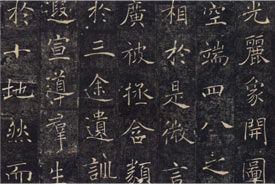 光麗象開圖
空端四八之
相於是微言
廣被拯含類
於三途遺訓
遐宣導羣生
於十地然而